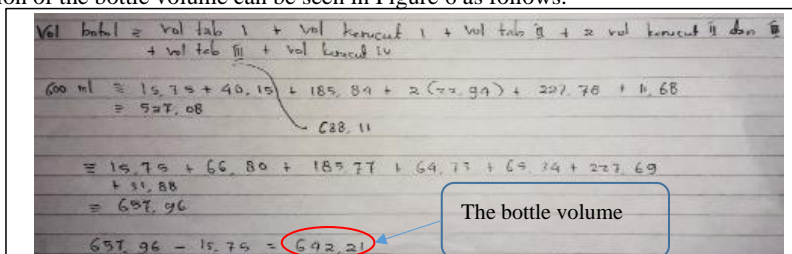 ion of the bottle volume can be seen in Figure 6 as follows.
Vol botol = vol tab I + vol kerucut I + vol tab II + 2 vol kerucut II dan III
+ vol tab III + vol kerucut IV
600 ml = 15,75 + 40,15 + 185,84 + 2 (22,94) + 227,78 + 11,68
= 527,08
638,11
= 15,75 + 66,80 + 185,77 + 64,73 + 65,34 + 227,69
+ 31,88
= 657,96
The bottle volume
657,96 - 15,75 = 642,21